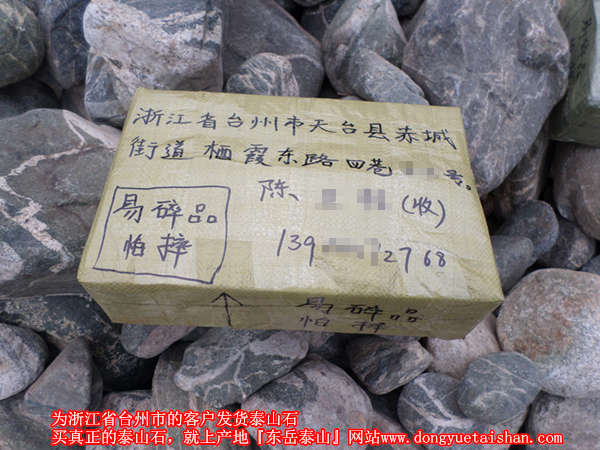 浙江省台州市天台县赤城
街道栖霞东路四巷 号。
陈、 (收)
139 2768
易碎品
怕摔
易碎品
怕摔
为浙江省台州市的客户发货泰山石
买真正的泰山石，就上产地『东岳泰山』网站www.dongyuetaishan.com.